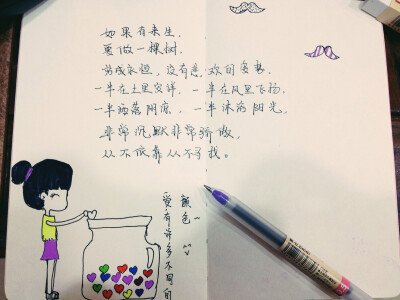 如果有来生,
要做一棵树,
站成永恒,没有悲欢的姿势.
一半在土里安详, 一半在风里飞扬,
一半洒落阴凉, 一半沐浴阳光,
非常沉默非常骄傲,
从不依靠从不寻找。
爱有许多不同的
颜色~